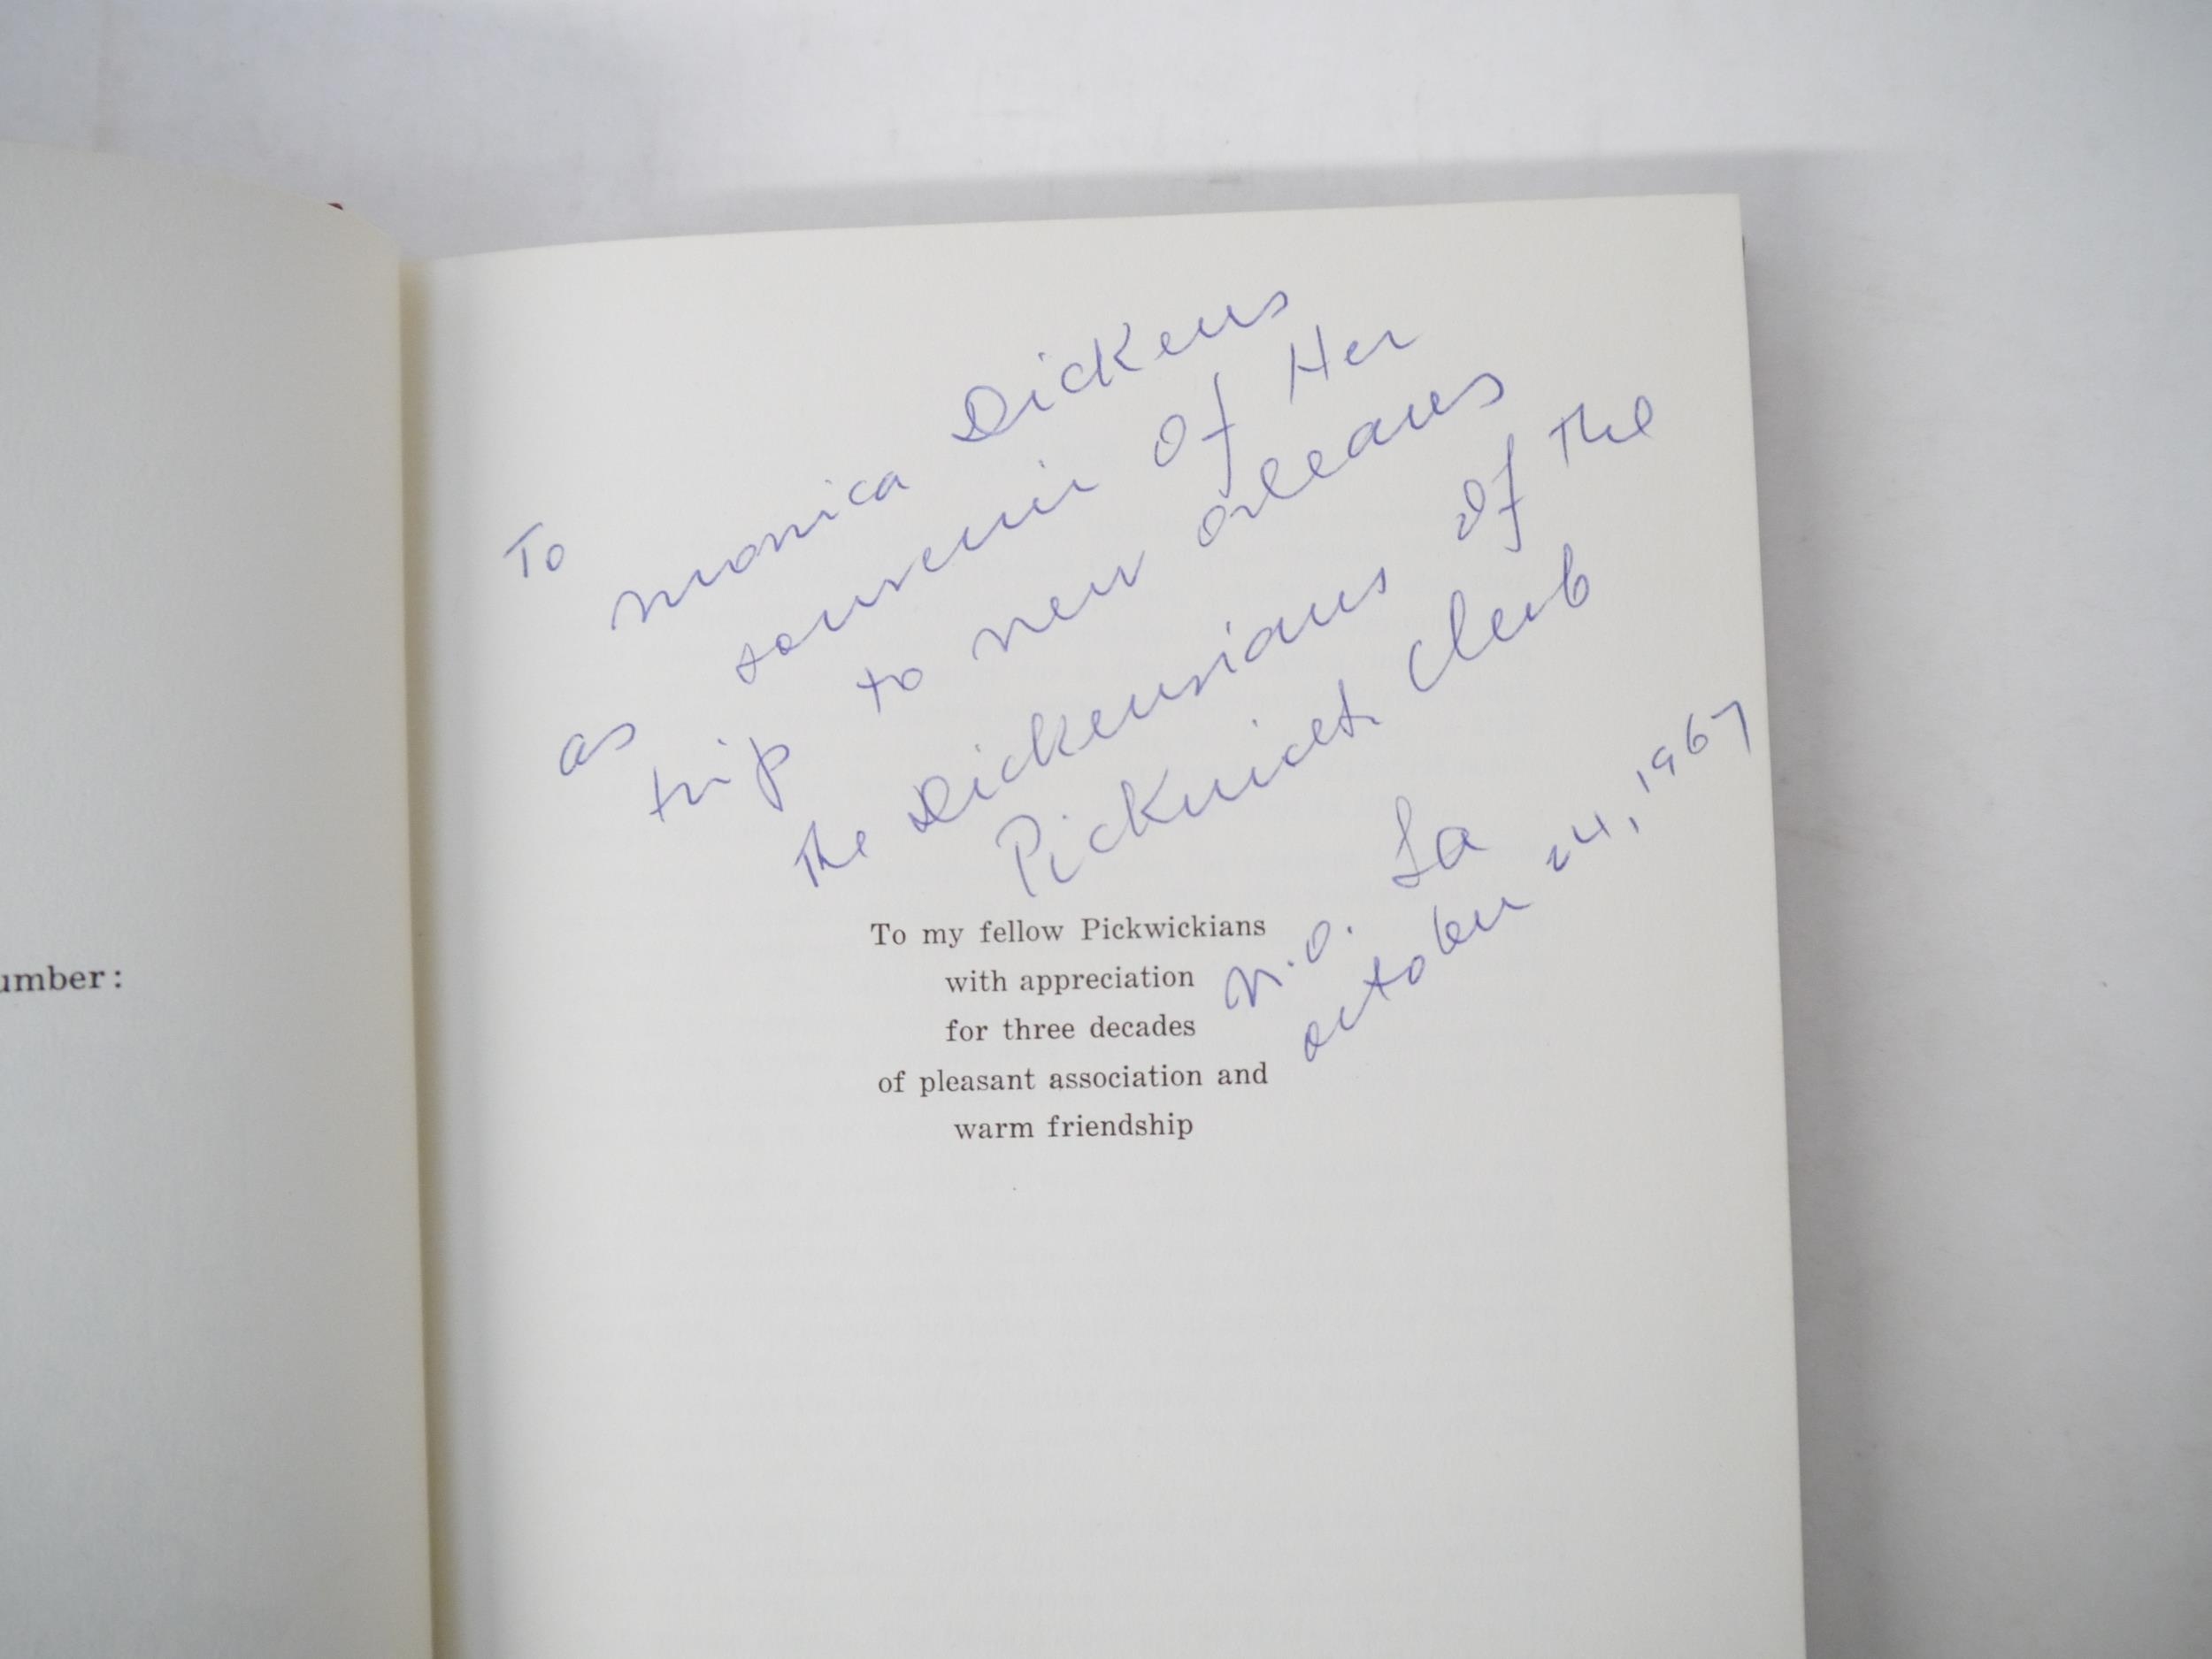 umber:
To Monica Dickens
as souvenir of Her
trip to new orleans
The Dickensians of the
Pickwick Club
N.O. La
october 24, 1967
To my fellow Pickwickians
with appreciation
for three decades
of pleasant association and
warm friendship